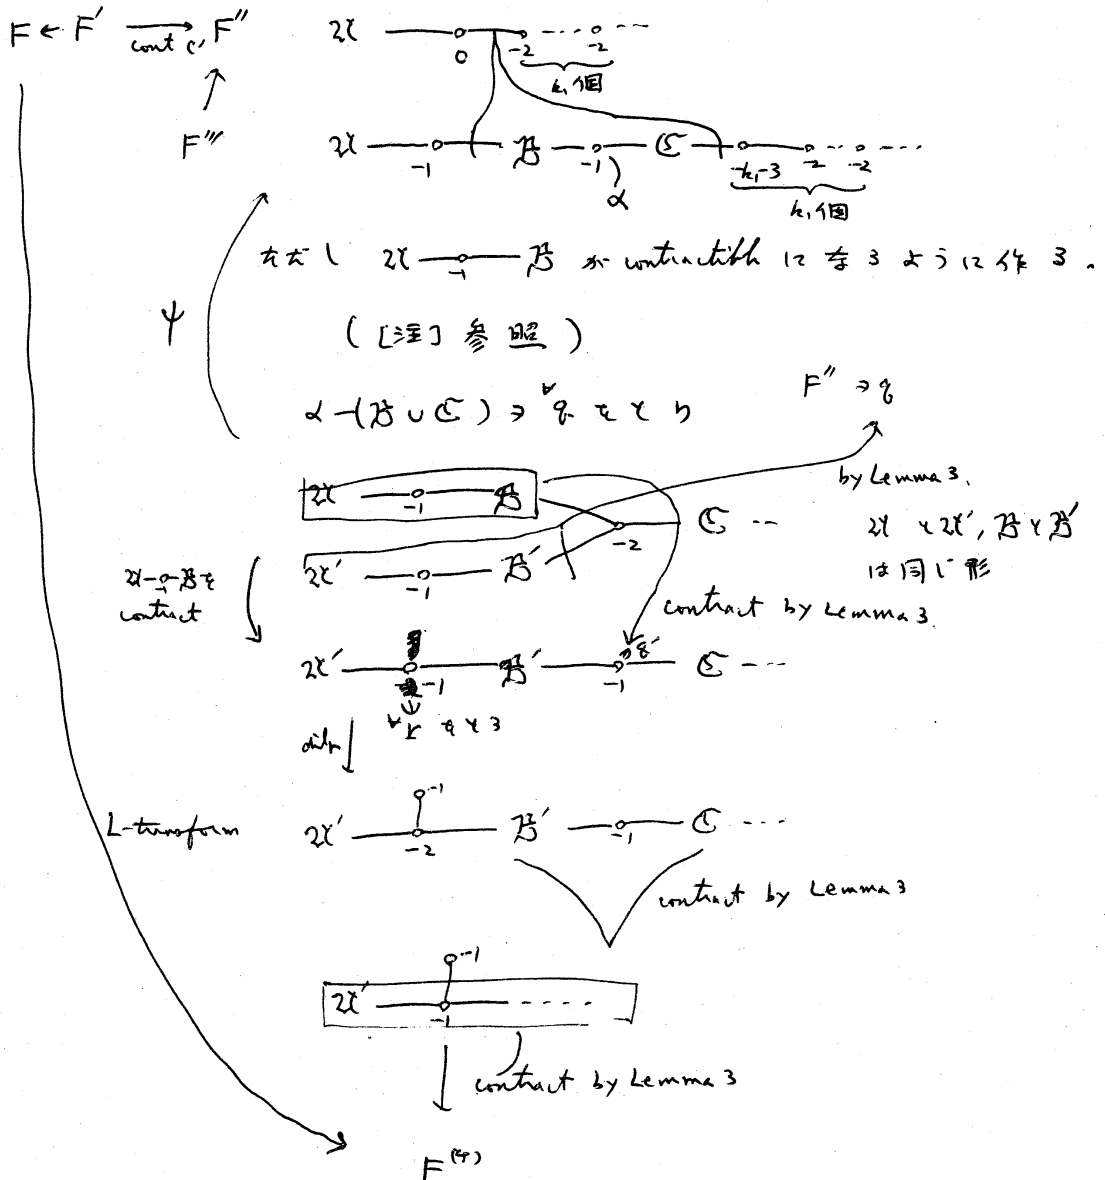 F ← F′ ⟶ F″
cont C′
𝔄 — 0 — -2 ····· -2 ···
k₁個
F‴
𝔄 — -1 — 𝔅 — -1 — ℭ — -k₁-3 — -2 ··· -2 ····
α
k₁個
ただし 𝔄 — -1 — 𝔅 が contractible になるように作る.
ψ
([注] 参照)
F″ ∋ q
α-(𝔅 ∪ ℭ) ∋ ∀q をとり
by Lemma 3.
𝔄 — -1 — 𝔅
-2 — ℭ ···
𝔄 と 𝔄′, 𝔅 と 𝔅′
は同じ形
𝔄′ — -1 — 𝔅′
𝔄 — -1 — 𝔅 を
contract
contract by Lemma 3.
𝔄′ — -1 — 𝔅′ — -1 — ℭ ···
q′
∀r をとる
dil_r
-1
L-transform 𝔄′ — -2 — 𝔅′ — -1 — ℭ ····
contract by Lemma 3
-1
𝔄′ — -1 — ·····
contract by Lemma 3
F^(4)